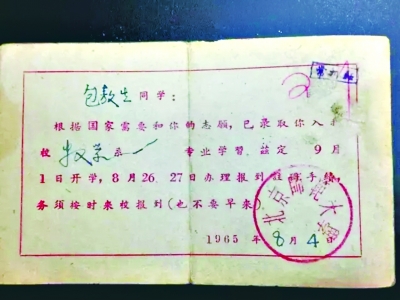 包敖生同学：
根据国家需要和你的志愿，已录取你入我
校 教系 专业学習，兹定 9 月
1日开学，8月26、27日办理报到註册手续，
务须按时来校报到(也不要早来)。
北京师范大学
1965 年 8 月 4 日